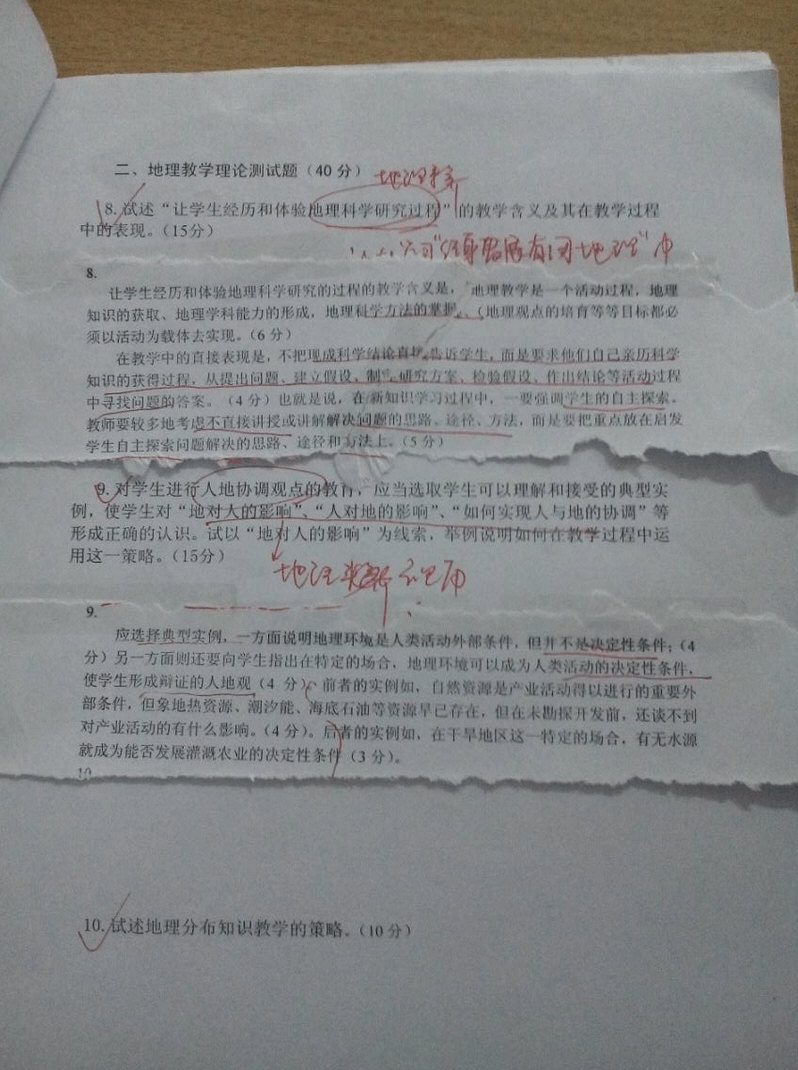 二、地理教学理论测试题（40 分）
8. 试述“让学生经历和体验地理科学研究过程”的教学含义及其在教学过程
中的表现。（15分）
8.
让学生经历和体验地理科学研究的过程的教学含义是，地理教学是一个活动过程，地理
知识的获取、地理学科能力的形成，地理科学方法的掌握、（地理观点的培育等等目标都必
须以活动为载体去实现。（6 分）
在教学中的直接表现是，不把现成科学结论直接告诉学生，而是要求他们自己亲历科学
知识的获得过程，从提出问题、建立假设、制 研究方案，检验假设、作出结论等活动过程
中寻找问题的答案。（4 分）也就是说，在新知识学习过程中，一要强调学生的自主探索。
教师要较多地考虑不直接讲授或讲解解决问题的思路、途径、方法，而是要把重点放在启发
学生自主探索问题解决的思路、途径和方法上。（5 分）
9. 对学生进行人地协调观点的教育，应当选取学生可以理解和接受的典型实
例，使学生对“地对人的影响”、“人对地的影响”、“如何实现人与地的协调”等
形成正确的认识。试以“地对人的影响”为线索，举例说明如何在教学过程中运
用这一策略。（15分）
9.
应选择典型实例，一方面说明地理环境是人类活动外部条件，但并不是决定性条件；（4
分）另一方面则还要向学生指出在特定的场合，地理环境可以成为人类活动的决定性条件，
使学生形成辩证的人地观（4 分）。前者的实例如，自然资源是产业活动得以进行的重要外
部条件，但象地热资源、潮汐能、海底石油等资源早已存在，但在未勘探开发前，还谈不到
对产业活动的有什么影响。（4 分）。后者的实例如，在干旱地区这一特定的场合，有无水源
就成为能否发展灌溉农业的决定性条件（3 分）。
10
10. 试述地理分布知识教学的策略。（10 分）